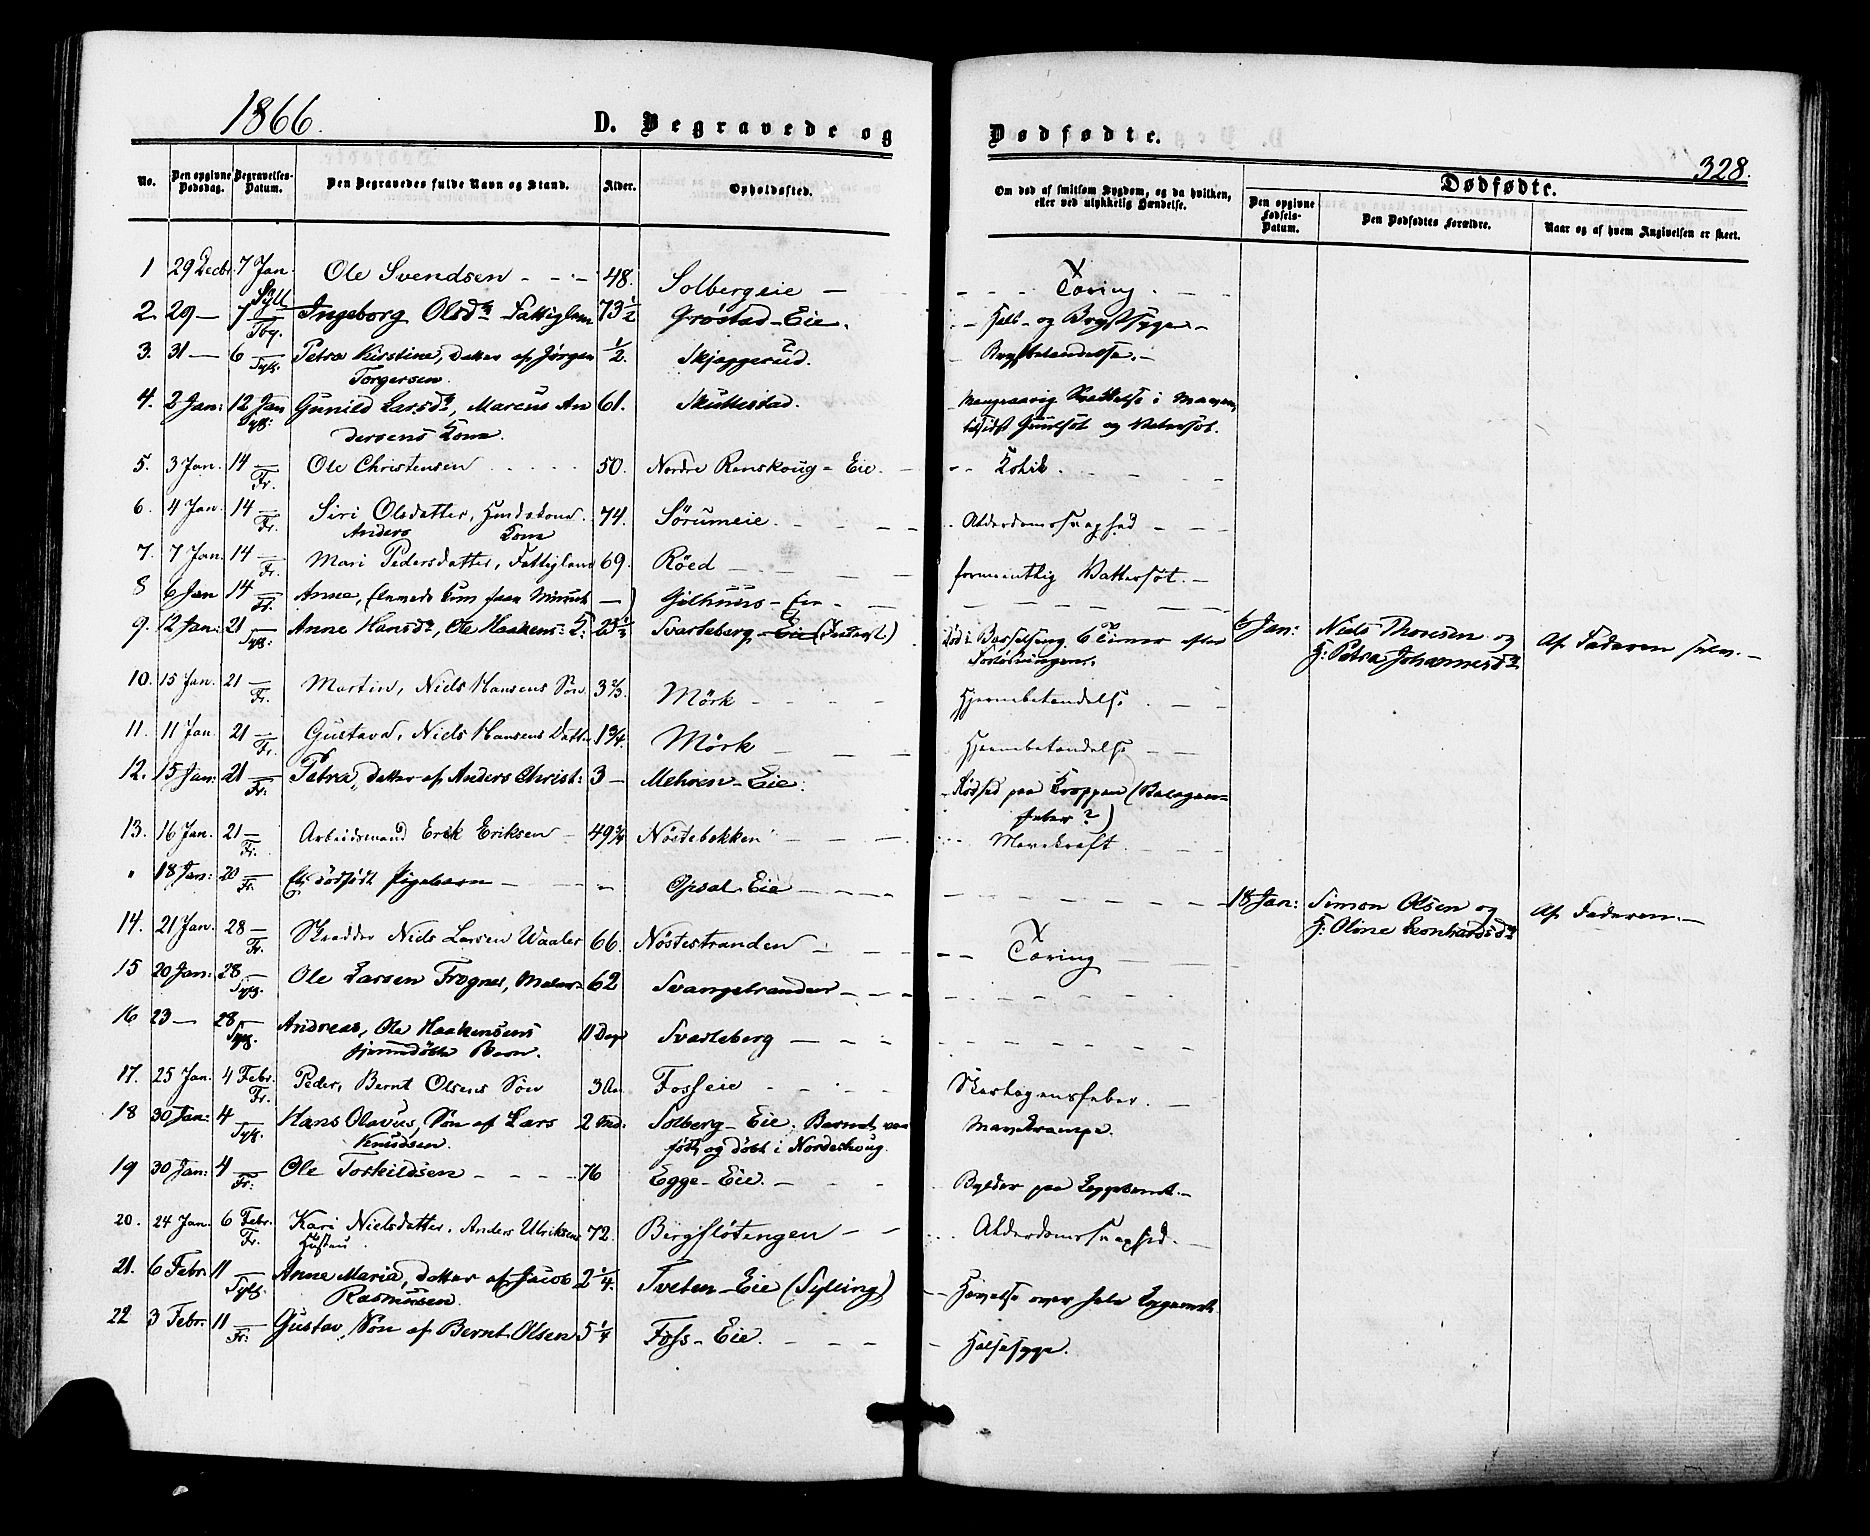 1866.
D. Begravede og
Dødfødte.
328.
No.
Den opgivne Dødsdag.
Begravelses-Datum.
Den Begravedes fulde Navn og Stand.
Alder.
Opholdssted.
Om død af smitsom Sygdom, og da hvilken, eller ved ulykkelig Hændelse.
Dødfødte.
Den opgivne Fødsels-Datum.
Den Dødfødtes Forældre.
Naar og af hvem Angivelsen er skeet.
1 29 Decbr. 7 Jan. Ole Svendsen - - - 48. Solbergeie - - - - Tæring.
2. 29 - 7 Ingeborg Olsd. Fattiglem 73 1/2 Grøstad-Eie. - - Hals- og Brystsyge -
3. 31 - 6 Petra Kirstine, Datter af Jørgen 1/2. Skjæggerud. - Brystbetændelse. -
Torgersen.
4. 2 Jan: 12 Jan Gunild Larsd., Marcus An 61. Skuttestad. - i Maven,
dersens Kone. og Vatersot.
5. 3 Jan. 14 - Fr. Ole Christensen - - - 50. Nordre Renskoug - Eie. - - - Kolik.
6. 4 Jan. 14 - Fr. Siri Olsdatter, 74. Sörumeie. - - Alderdomssvaghed - - -
Anders Kone
7. 7 Jan. 14 - Fr. Mari Pedersdatter, Fattiglem 69. Röed - - formentlig Vattersot. -
8 6 Jan 14 - Fr. Anne, Gilhuus - Eie - - -
9. 12 Jan: 21 - Sylg. Anne Hansd., Ole Haakens: K: 23 1/2 Svarteberg - Eie Død i Barselseng 6 Timer efter 6 Jan: Niels Thoresen og Af Faderen selv. -
Forløsningen. H: Petra Johannesd.
10. 15 Jan. 21 - Fr. Martin, Niels Hansens Søn 3 Mörk - - - Hjernebetændelse - -
11. 11 Jan. 21 - Fr. Gustava, Niels Hansens Datter 1 3/4 Mörk - - Hjernebetændelse - -
12. 15 Jan: 21 - Fr. Petra, datter af Anders Christ: 3 - Mehren - Eie. - paa Kroppen
feber?)
13. 16 Jan. 21 - Fr. Arbeidsmand Erik Eriksen - 49 3/4 Nöstebakken - - -
" 18 Jan: 20 - Fr. Et dødfødt Pigebarn - - - Opsal-Eie - - - 18 Jan: Simon Olsen og Af Faderen. -
H: Oline Leonhardsd.
14. 21 Jan. 28 - Fr. Skrædder Niels Larsen Waaler 66. Nöstestranden - - - Tæring - - -
15 20 Jan: 28 - Sylg. Ole Larsen Frogner, 62 Svangstranden - - - -
16 23 - 28 - Sylg. Andreas, Ole Haakensens 11 Dage Svarteberg - - -
hjemmedøbte Barn.
17. 25 Jan. 4 Febr. Fr. Peder, Bernt Olsens Sön 3 Fosseie - - - Skarlagensfeber. -
18 30 Jan: 4 - Sylg. Hans Olavus, Søn af Lars 2 Solberg - Eie. Barnet var Mavekrampe.
Knudsen. født og døbt i Norderhoug.
19 30 Jan: 4 - Fr. Ole Torkildsen - - - 76 Egge - Eie. - - - Bylder paa -
20. 24 Jan. 6 Febr. Fr. Kari Nielsdatter, Anders Ulriksens 72. Bergflötingen - - - Alderdomssvaghed. -
Hustru.
21. 6 Febr: 11 - Sylg. Anne Maria, datter af Jacob 2 1/4. Tveten - Eie (Sylling) - - over hele Legemet.
Rasmussen.
22 3 Febr: 11 - Fr. Gustav Søn af Bernt Olsen 5 1/4 Foss - Eie. - - - Halssyge.